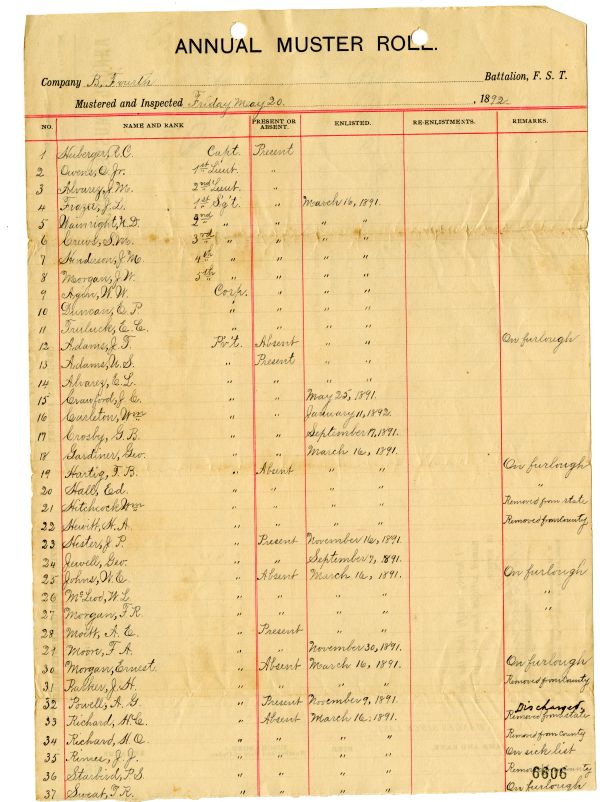 ANNUAL MUSTER ROLL.
Company B. Fourth Battalion, F. S. T.
Mustered and Inspected Friday May 20. , 1892
NO. NAME AND RANK PRESENT OR ABSENT. ENLISTED. RE-ENLISTMENTS. REMARKS.
1 Heiberger, R.C. Capt. Present
2 Owens, O. Jr. 1st Lieut. "
3 Alvarez, J. M. 2nd Lieut. "
4 Frazee, J. L. 1st Sg't. " March 16, 1891.
5 Wainright, W. D. 2nd " " " "
6 Crews, S. M. 3rd " " " "
7 Henderson, J. M. 4th " " " "
8 Morgan, J. W. 5th " " " "
9 Agin, W. W. Corp. " " "
10 Duncan, E. P. " " " "
11 Truluck, E. E. " " " "
12 Adams, J. F. Pv't. Absent " " On furlough
13 Adams, W. S. " Present " "
14 Alvarez, E. L. " " " "
15 Crawford, J. C. " " May 25, 1891.
16 Carleton, Wm " " January 11, 1892.
17 Crosby, G. B. " " September 17, 1891.
18 Gardiner, Geo. " " March 16, 1891.
19 Hartig, F. B. " Absent " " On furlough
20 Hall, Ed. " " " " "
21 Hitchcock, Wm " " " " Removed from state
22 Hewitt, H. A. " " " " Removed from county
23 Hester, J. P. " Present November 16, 1891.
24 Jewell, Geo. " " September 7, 1891.
25 Johns, W. E. " Absent March 16, 1891. On furlough
26 McLeod, W. L. " " " " "
27 Morgan, F. R. " " " " "
28 Mott, A. E. " Present " "
29 Moore, F. A. " " November 30, 1891.
30 Morgan, Ernest " Absent March 16, 1891. On furlough
31 Parker, J. H. " " " " Removed from county
32 Powell, A. G. " Present November 9, 1891.
Discharged,
33 Richard, H. C. " Absent March 16. 1891. Removed from state
34 Richard, H. O. " " " " Removed from county
35 Rimes, J. J. " " " " On sick list
36 Starbird, P. S. " " " " Removed from county
6606
37 Sweat, F. R. " " " " On furlough